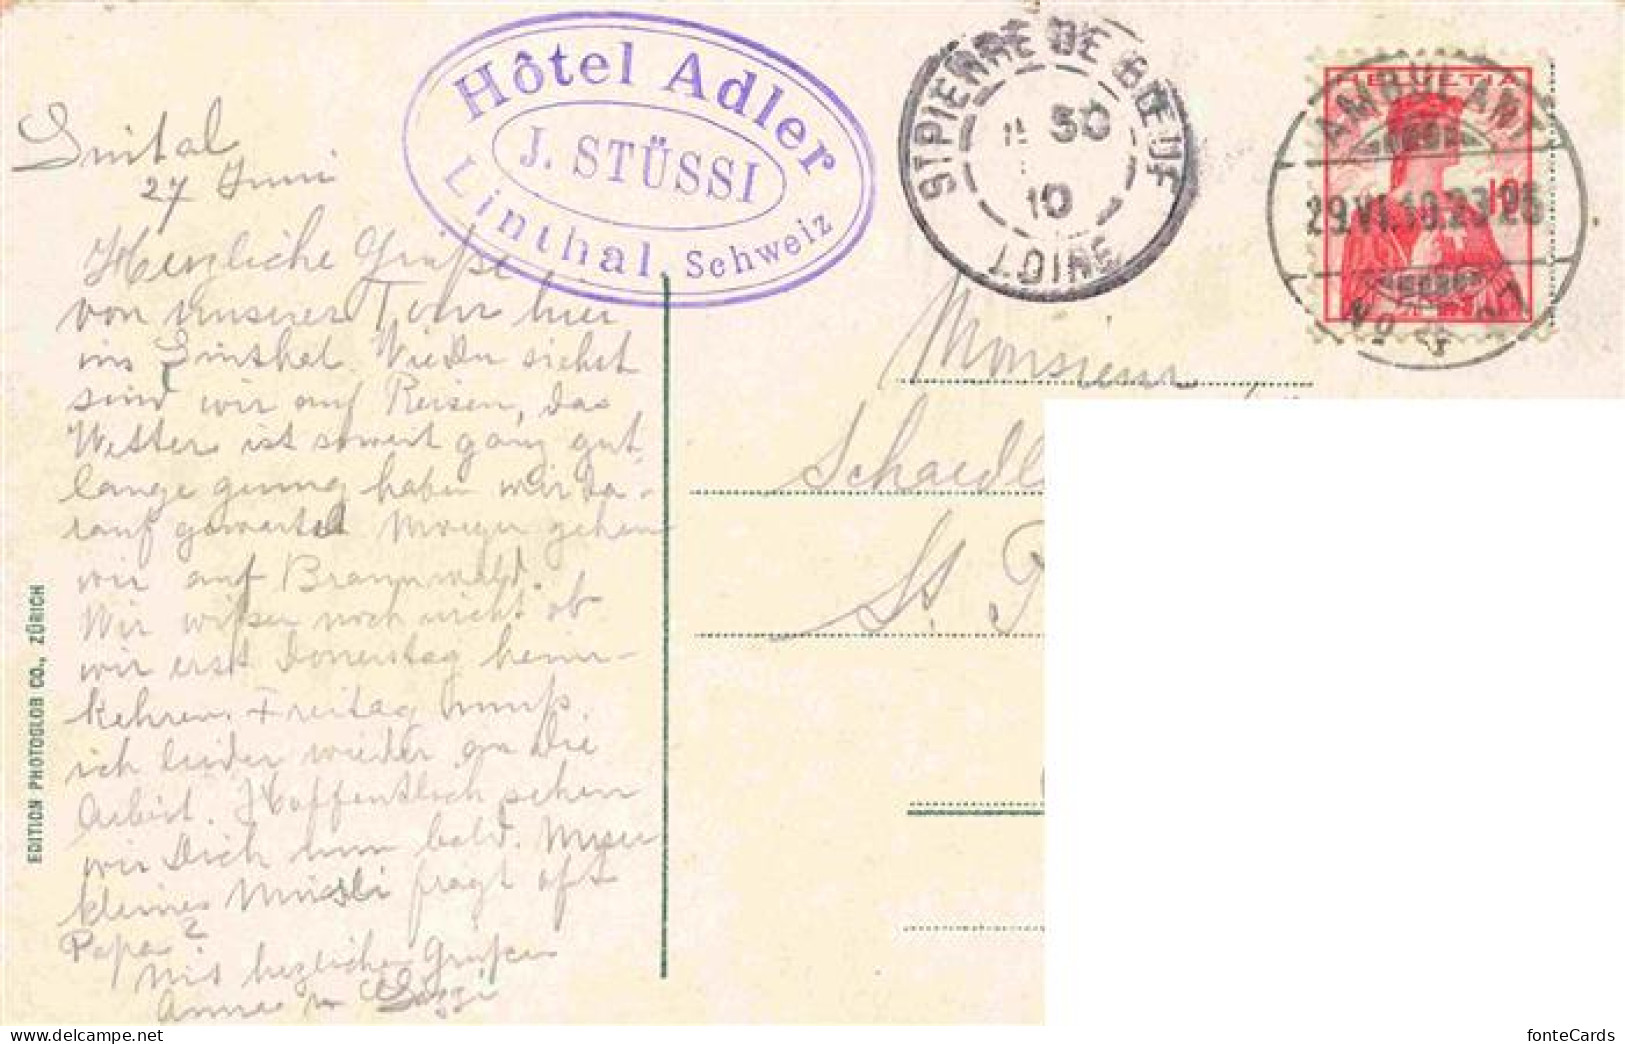 Hôtel Adler
J. STÜSSI
Linthal, Schweiz
ST PIERRE DE BŒUF
50
10
LOIRE
HELVETIA
10
AMBULANT
29.VI.10.23
No
Lintal
27 Juni
Herzliche Grüße
von unserer Tour hier
ins Linthal. Wie Du siehst
sind wir auf Reisen, das
Wetter ist soweit ganz gut,
lange genug haben wir da-
rauf gewartet. Morgen gehen
wir auf Braunwald.
Wir wissen noch nicht ob
wir erst Donerstag heim-
kehren. Freitag muß
ich leider wieder an die
Arbeit. Hoffentlich sehen
wir Dich nun bald. Unser
kleines Müsli fragt oft
Papa?
Mit herzlichen Grüßen
Anna
Monsieur
Schaedl
St. P
EDITION PHOTOGLOB CO., ZÜRICH
fonteCards